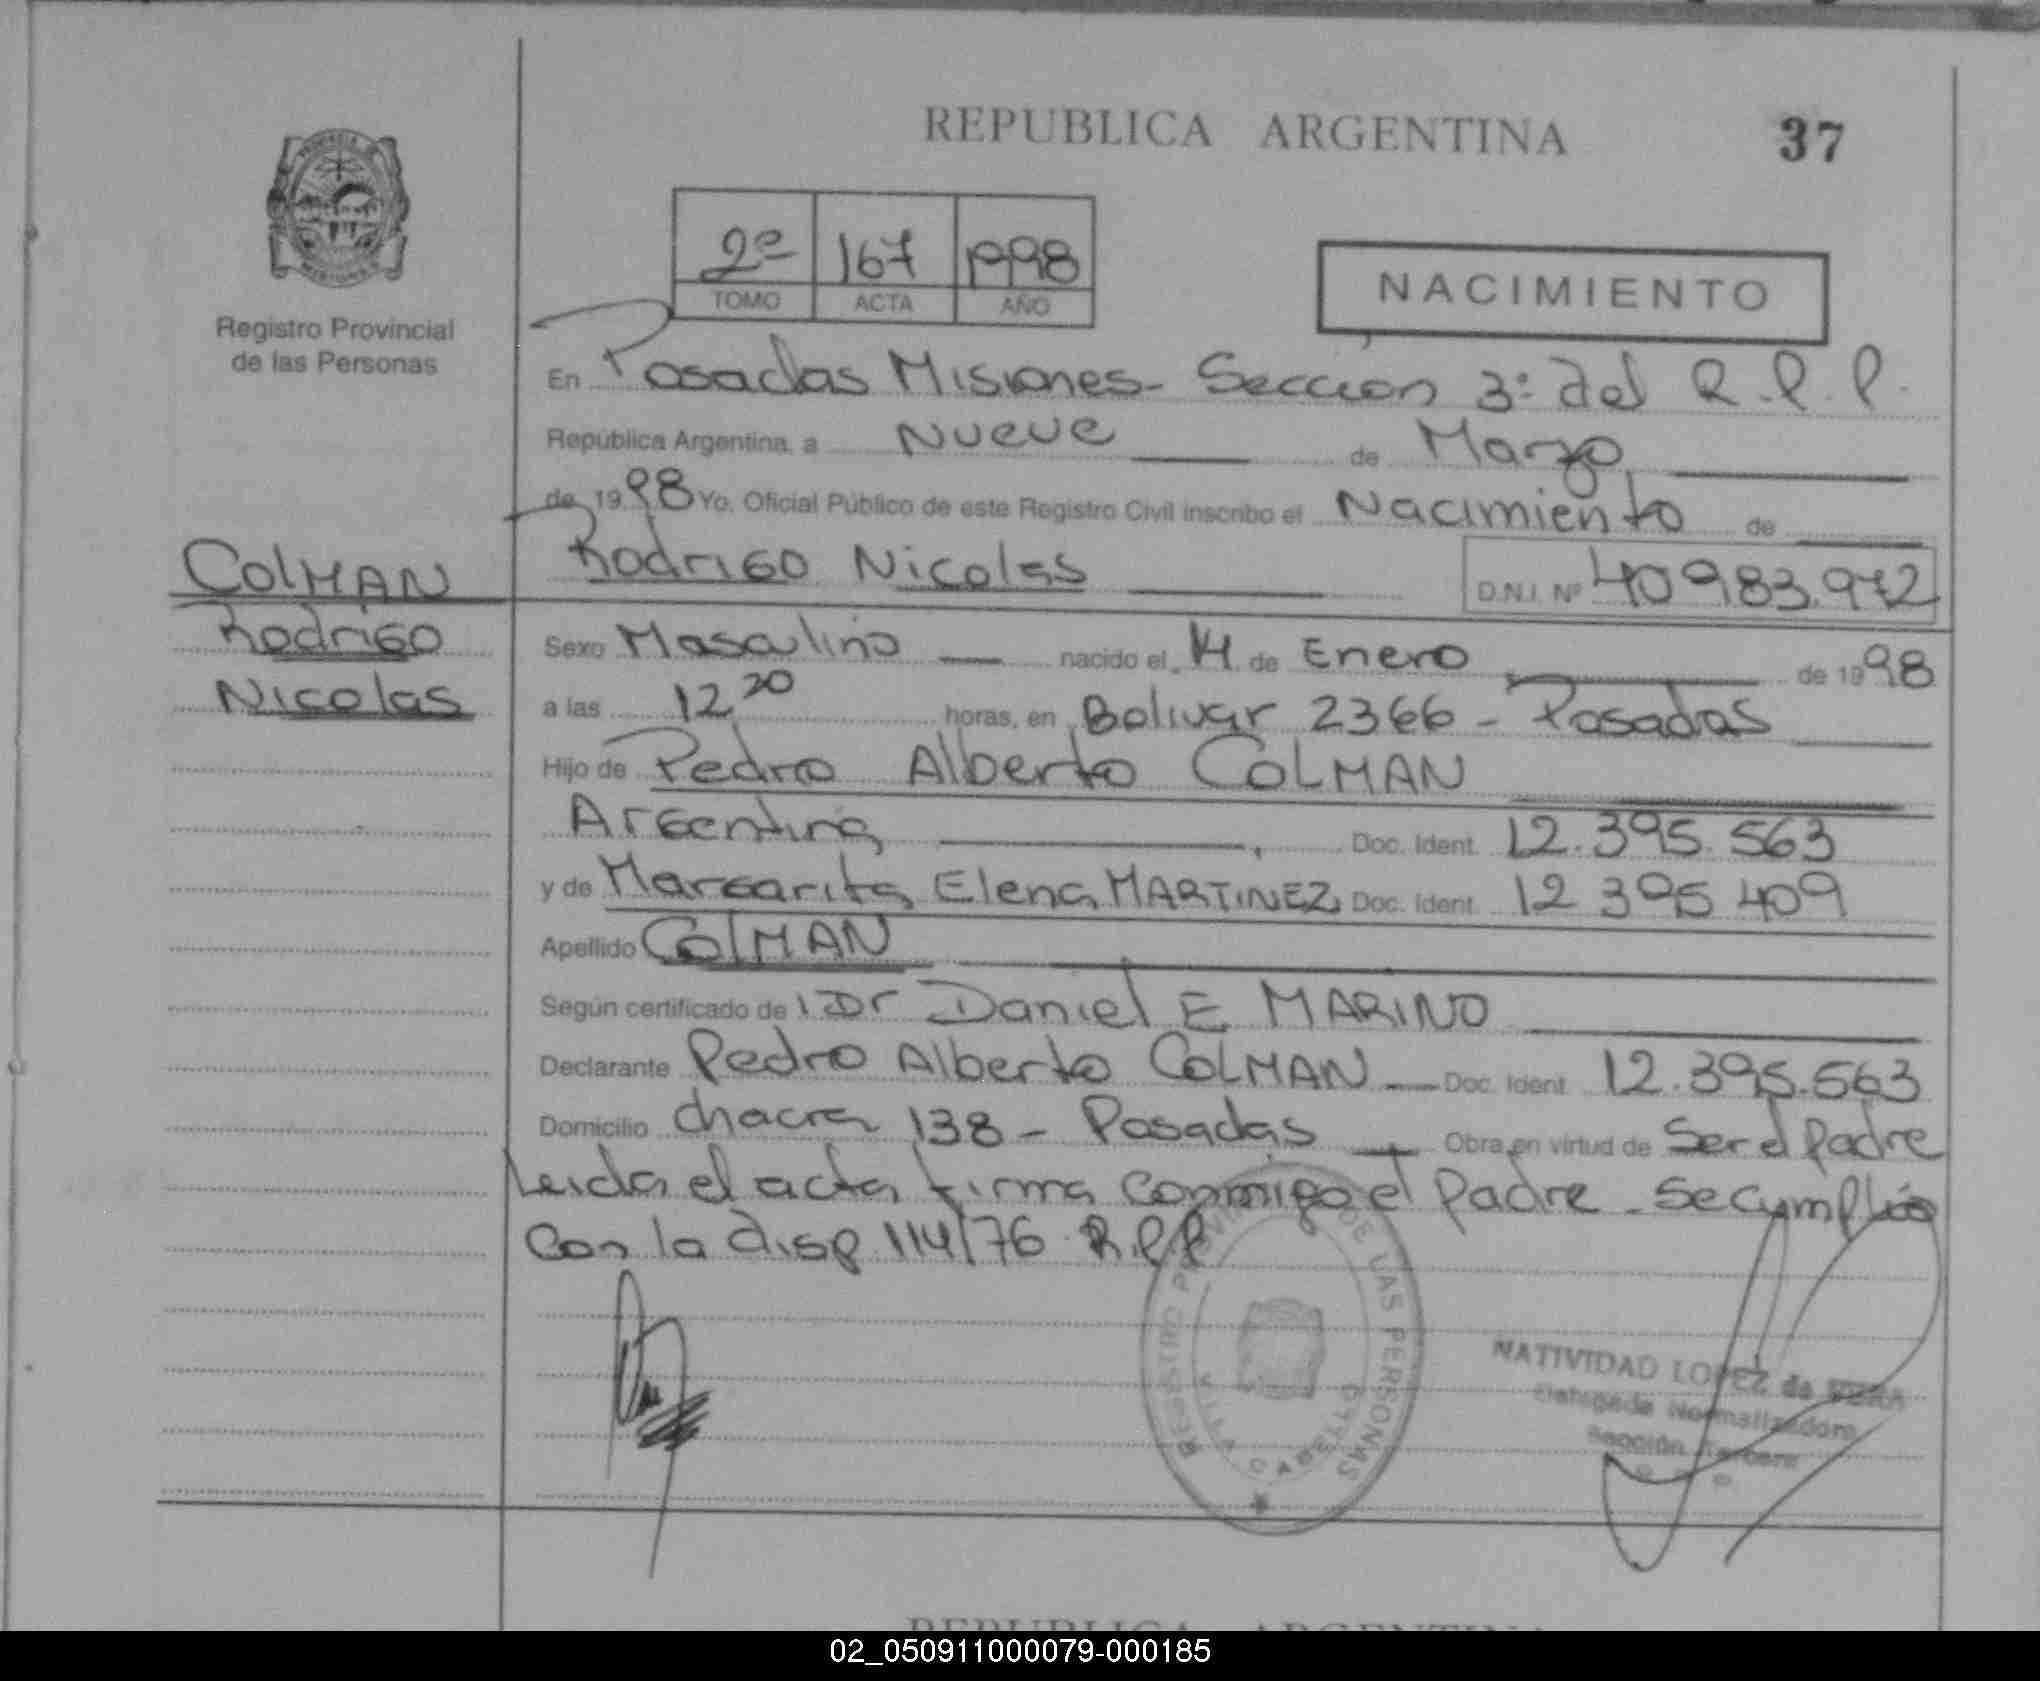 REPUBLICA ARGENTINA 37
PROVINCIA DE MISIONES
Registro Provincial
de las Personas
2º 167 1998
TOMO ACTA AÑO
NACIMIENTO
En Posadas Misiones - Sección 3º del R.P.P.
República Argentina, a Nueve de Marzo
de 1998 Yo, Oficial Público de este Registro Civil inscribo el Nacimiento de
COLMAN
Rodrigo
Nicolas
Rodrigo Nicolas D.N.I. Nº 40983.972
Sexo Masculino nacido el 14 de Enero de 1998
a las 12 20 horas, en Bolivar 2366 - Posadas
Hijo de Pedro Alberto COLMAN
Argentina, Doc. Ident. 12.395.563
y de Margarita Elena MARTINEZ Doc. Ident. 12 395 409
Apellido COLMAN
Según certificado de Dr Daniel E MARINO
Declarante Pedro Alberto COLMAN Doc. Ident. 12.395.563
Domicilio chacra 138 - Posadas Obra en virtud de Ser el Padre
Leida el acta firma conmigo el Padre - Se cumplio
Con la disp 114/76 R.P.P
REGISTRO PROVINCIAL DE LAS PERSONAS
VILLA CABELLO
NATIVIDAD LOPEZ de
Delegada Normalizadora
Sección Tercera
REPUBLICA ARGENTINA
02_050911000079-000185